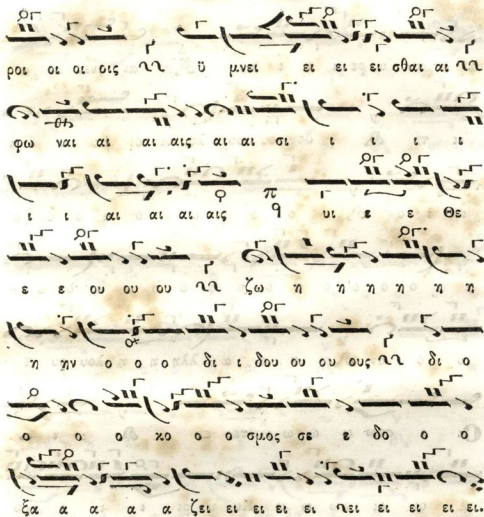 ροι οι οι οις ϋ μνει ει ει ει σθαι αι
φω ναι αι αι αις αι αι σι ι ι ι ι
ι ι αι αι αι αι αις π q υι ε ε Θε
ε ε ου ου ου ζω η η η η η
η ην ο ο ο δι ι δου ου ου ους δι ο
ο ο ο κο ο σμος σε ε δο ο ο
ξα α α α α ζει ει ει ει ει ει ει ει ει.